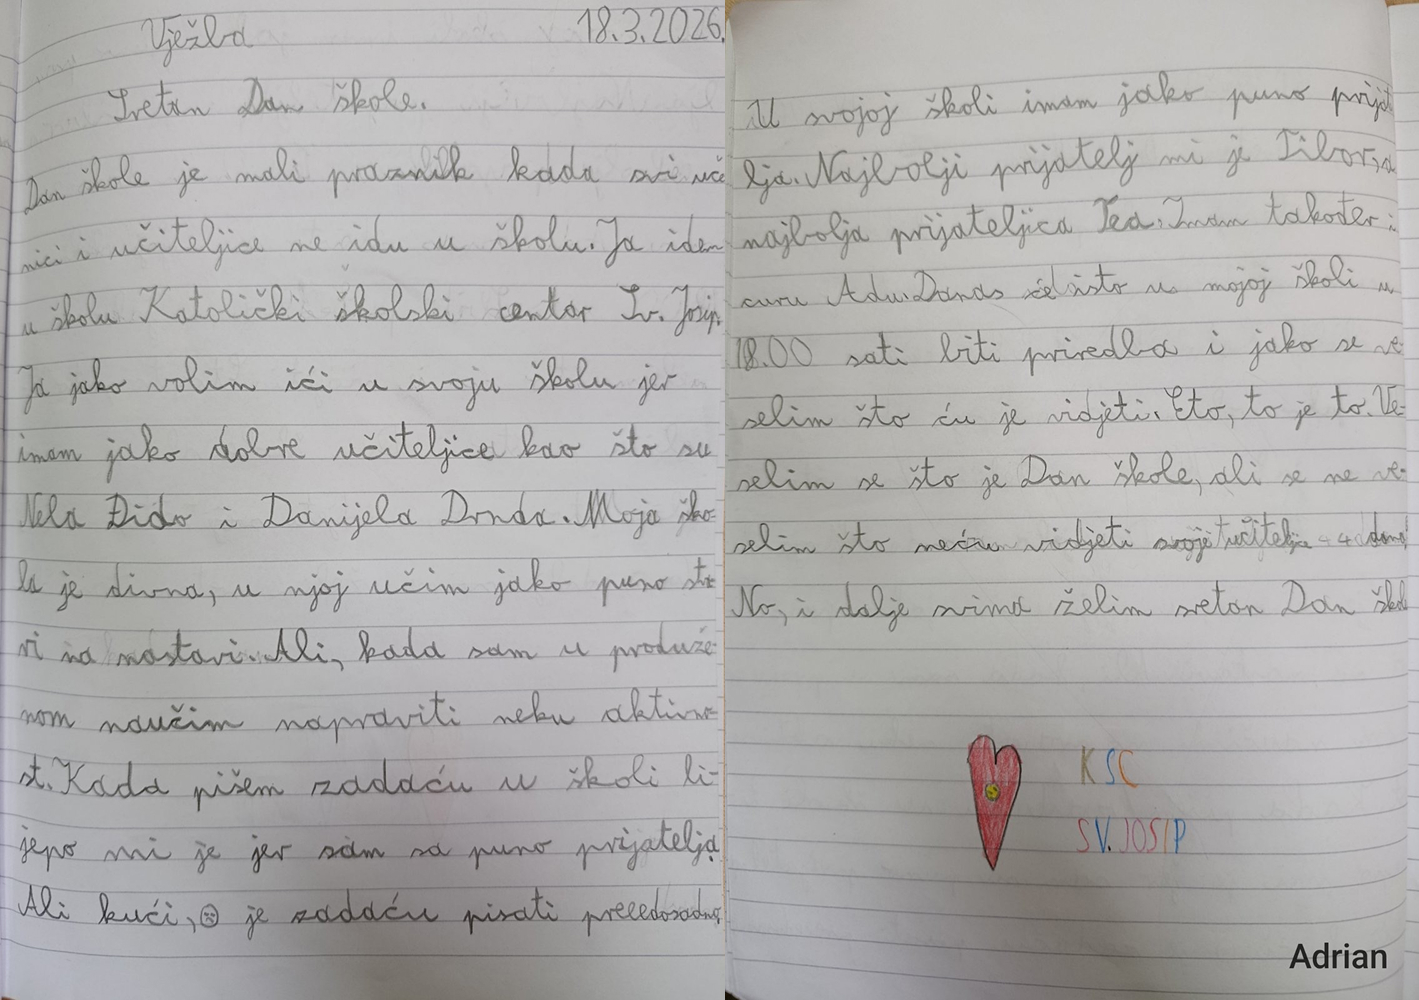 Vježba 18.3.2026.
Sretan Dan škole.
Dan škole je mali praznik kada svi uče
nici i učiteljice ne idu u školu. Ja idem
u školu Katolički školski centar Sv. Josip.
Ja jako volim ići u svoju školu jer
imam jako dobre učiteljice kao što su
Nela Đido i Danijela Drnda. Moja ško-
la je divna, u njoj učim jako puno stva
ri na nastavi. Ali, kada sam u produže-
nom naučim napraviti neku aktivno-
st. Kada pišem zadaću u školi li-
jepo mi je jer sam sa puno prijatelja.
Ali kući, je zadaću pisati preeedosadno.
U svojoj školi imam jako puno prijat
lja. Najbolji prijatelj mi je Tibor, a
najbolja prijateljica Tea. Imam također i
curu Adu. Danas će isto u mojoj školi u
18.00 sati biti priredba i jako se ve-
selim što ću je vidjeti. Eto, to je to. Ve-
selim se što je Dan škole, ali se ne ve-
selim što neću vidjeti učitelja 4 dana!
No, i dalje svima želim sretan Dan škol
KSC
SV. JOSIP
Adrian